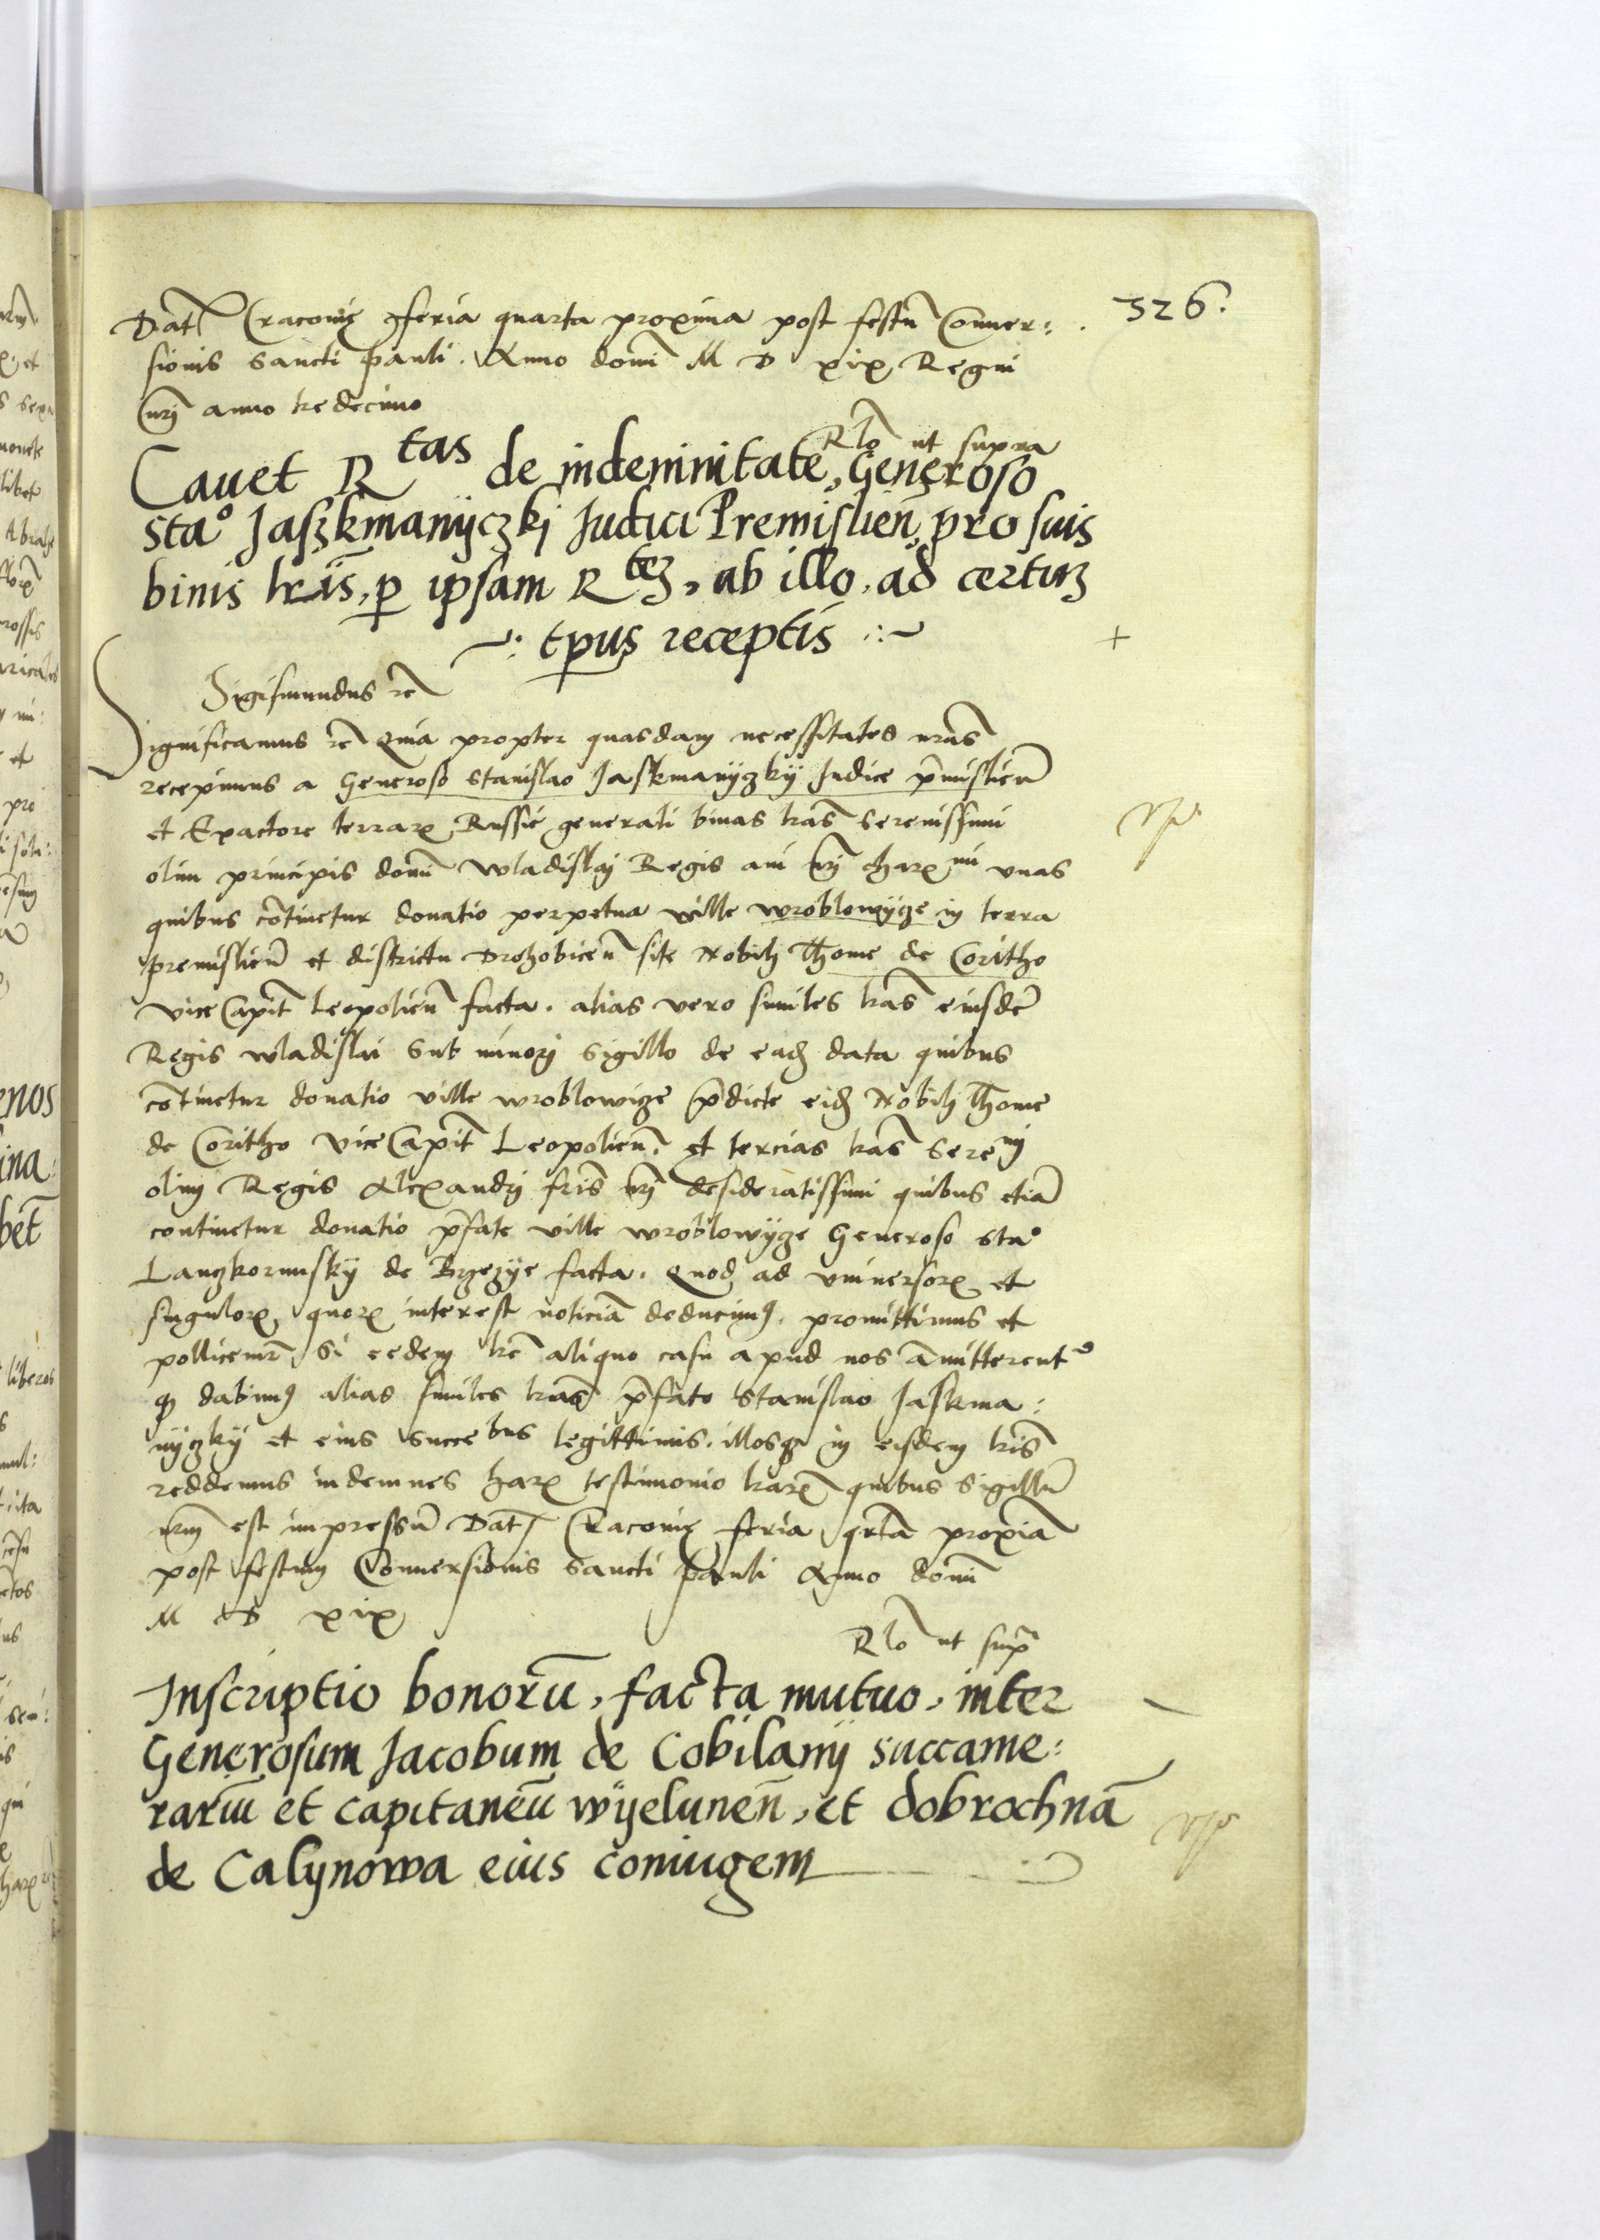 326.
Dat Cracovię feria quarta proxima post festū Conver:
sionis sancti pauli. Anno domī M D xix Regni
nrī anno tredecimo
Rlō ut supra
Cavet Rtas de indemnitate, Generoso
staº Jaszkmanÿczkj Judici Premislieñ pro suis
binis lrīs, p ipsam Rtez, ab illo, ad certuz
tpus receptis
Sigismundus rē
Significamus rē Quia propter quasdam necessitates nrās
recepimus a Generoso Stanislao Jaskmanÿczkÿ Judice p̄mislieñ
et Exactore terrarꝝ Russie generali binas lrās Serenissimi
olim principis domī Wladislaj Regis avi nrī charꝝmi unas
quibus cōtinetur donatio perpetua ville Wroblowÿcze in terra
premislieñ et districtu Drohobiceñ site Nobili Thome de Coritho
viceCapit̄ Leopolieñ facta. alias vero similes lrās eiusdē
Regis Wladislai Sub minori Sigillo de eadꝫ data quibus
cōtinetur donatio ville Wroblowicze p̄dicte eidꝫ Nobili Thome
de Coritho viceCapit̄ Leopolieñ. et tercias lrās Serenmi
olim Regis Alexandri fris nrī desideratissimi quibus etiā
continetur donatio p̄fate ville Wroblowÿcze Generoso Staº
Lanczkorunskÿ de Brzezÿe facta. Quod ad universorꝝ et
singulorꝝ, quorꝝ interest noticiā deducimꝰ. promittimus et
pollicemr̄ Si eedem lrē aliquo casu apud nos āmitterent
qꝫ dabimꝰ alias similes lrās p̄fato Stanislao Jaskma:
nÿczkÿ et eius succebus legittimis. illosqꝫ in eisdem lrīs
reddemus indemnes harꝝ testimonio lrarꝝ quibus Sigillū
nrm est impressū Dat Cracovię feria qrta proxiā
post festum Conversionis Sancti pauli Anno domī
M D xix
Rlō ut sup̄
Inscriptio bonorū, facta mutuo, inter
Generosum Jacobum de Cobilanÿ succame:
rariū et capitaneū wÿeluneñ, et dobrochnā
de Calynowa eius coniugem